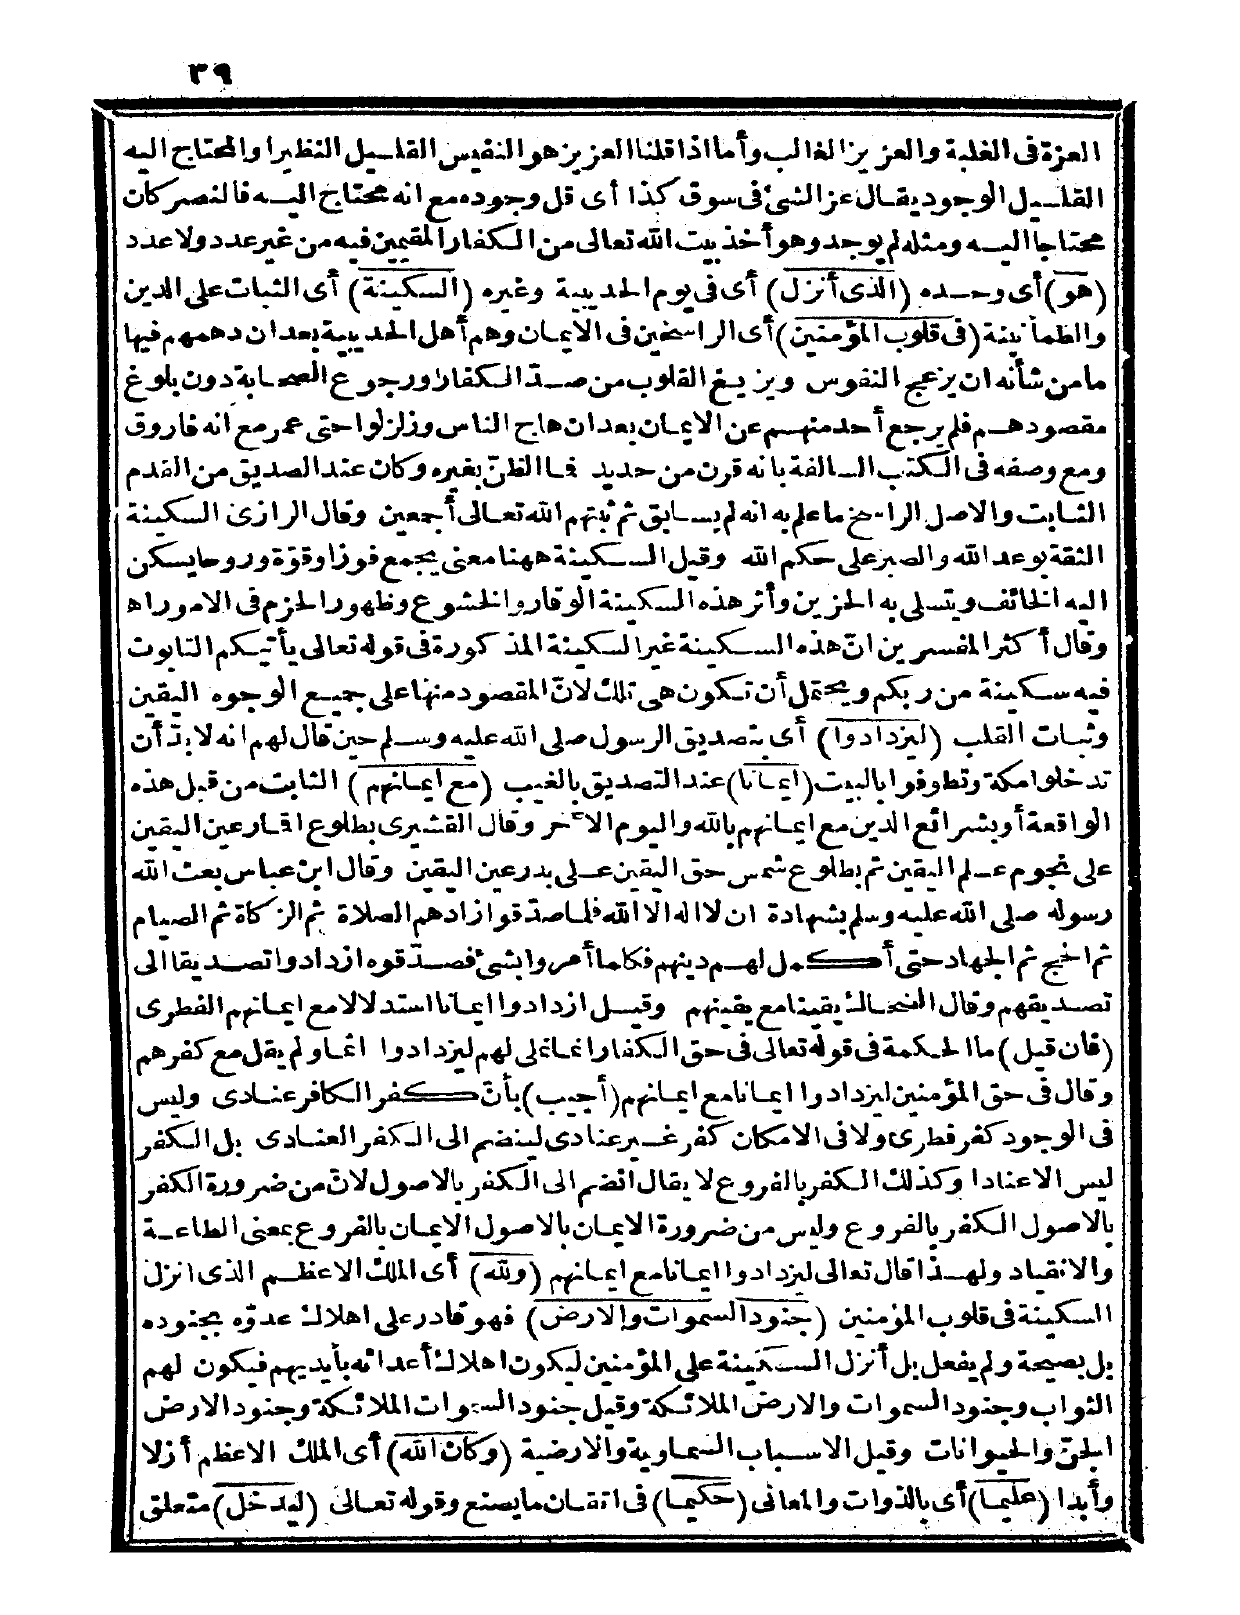 ٣٩
العزة فى الغلبة والعزيز الغالب وأما اذا قلنا العزيز هو النفيس القليل النظير أو المحتاج اليه
القليل الوجود يقال عز الشئ فى سوق كذا أى قل وجوده مع انه محتاج اليه فالنصر كان
محتاجا اليه ومثله لم يوجد وهو أخذ بيت الله تعالى من الكفار المقيمين فيه من غير عدد ولا عدد
(هو) أى وحده (الذى أنزل) أى فى يوم الحديبية وغيره (السكينة) أى الثبات على الدين
والطمأنينة (فى قلوب المؤمنين) أى الراسخين فى الايمان وهم أهل الحديبية بعد ان دهمهم فيها
ما من شأنه ان يزعج النفوس ويزيغ القلوب من صدّ الكفار ورجوع الصحابة دون بلوغ
مقصودهم فلم يرجع أحد منهم عن الايمان بعد ان هاج الناس وزلزلوا حتى عمر مع انه فاروق
ومع وصفه فى الكتب السالفة بانه قرن من حديد فما الظنّ بغيره وكان عند الصديق من القدم
الثابت والاصل الراسخ ما علم به انه لم يسابق ثم ثبتهم الله تعالى أجمعين وقال الرازى السكينة
الثقة بوعد الله والصبر على حكم الله وقيل السكينة ههنا معنى يجمع فوزا وقوّة وروحا يسكن
اليه الخائف ويتسلى به الحزين وأثر هذه السكينة الوقار والخشوع وظهور الحزم فى الامور اه
وقال أكثر المفسرين انّ هذه السكينة غير السكينة المذكورة فى قوله تعالى يأتيكم التابوت
فيه سكينة من ربكم ويحتمل أن تكون هى تلك لانّ المقصود منها على جميع الوجوه اليقين
وثبات القلب (ليزدادوا) أى بتصديق الرسول صلى الله عليه وسلم حين قال لهم انه لا بدّ أن
تدخلوا مكة وتطوفوا بالبيت (ايمانا) عند التصديق بالغيب (مع ايمانهم) الثابت من قبل هذه
الواقعة أو بشرائع الدين مع ايمانهم بالله واليوم الآخر وقال القشيرى بطلوع اقمار عين اليقين
على نجوم علم اليقين ثم بطلوع شمس حق اليقين على بدر عين اليقين وقال ابن عباس بعث الله
رسوله صلى الله عليه وسلم بشهادة ان لا اله الا الله فلما صدّقوا زادهم الصلاة ثم الزكاة ثم الصيام
ثم الحج ثم الجهاد حتى أكمل لهم دينهم فكلما أمروا بشئ فصدّقوه ازدادوا تصديقا الى
تصديقهم وقال الضحاك يقينا مع يقينهم وقيل ازدادوا ايمانا استدلالا مع ايمانهم الفطرى
(فان قيل) ما الحكمة فى قوله تعالى فى حق الكفار انما نملى لهم ليزدادوا اثما ولم يقل مع كفرهم
وقال فى حق المؤمنين ليزدادوا ايمانا مع ايمانهم (أجيب) بأنّ كفر الكافر عنادى وليس
فى الوجود كفر فطرى ولا فى الامكان كفر غير عنادى لينضم الى الكفر العنادى بل الكفر
ليس الا عنادا وكذلك الكفر بالفروع لا يقال انضم الى الكفر بالاصول لانّ من ضرورة الكفر
بالاصول الكفر بالفروع وليس من ضرورة الايمان بالاصول الايمان بالفروع بمعنى الطاعة
والانقياد ولهذا قال تعالى ليزدادوا ايمانا مع ايمانهم (ولله) أى الملك الاعظم الذى انزل
السكينة فى قلوب المؤمنين (جنود السموات والارض) فهو قادر على اهلاك عدوّه بجنوده
بل بصيحة ولم يفعل بل أنزل السكينة على المؤمنين ليكون اهلاك أعدائه بأيديهم فيكون لهم
الثواب وجنود السموات والارض الملائكة وقيل جنود السموات الملائكة وجنود الارض
الجنّ والحيوانات وقيل الاسباب السماوية والارضية (وكان الله) أى الملك الاعظم أزلا
وأبدا (عليما) أى بالذوات والمعانى (حكيما) فى اتقان ما يصنع وقوله تعالى (ليدخل) متعلق